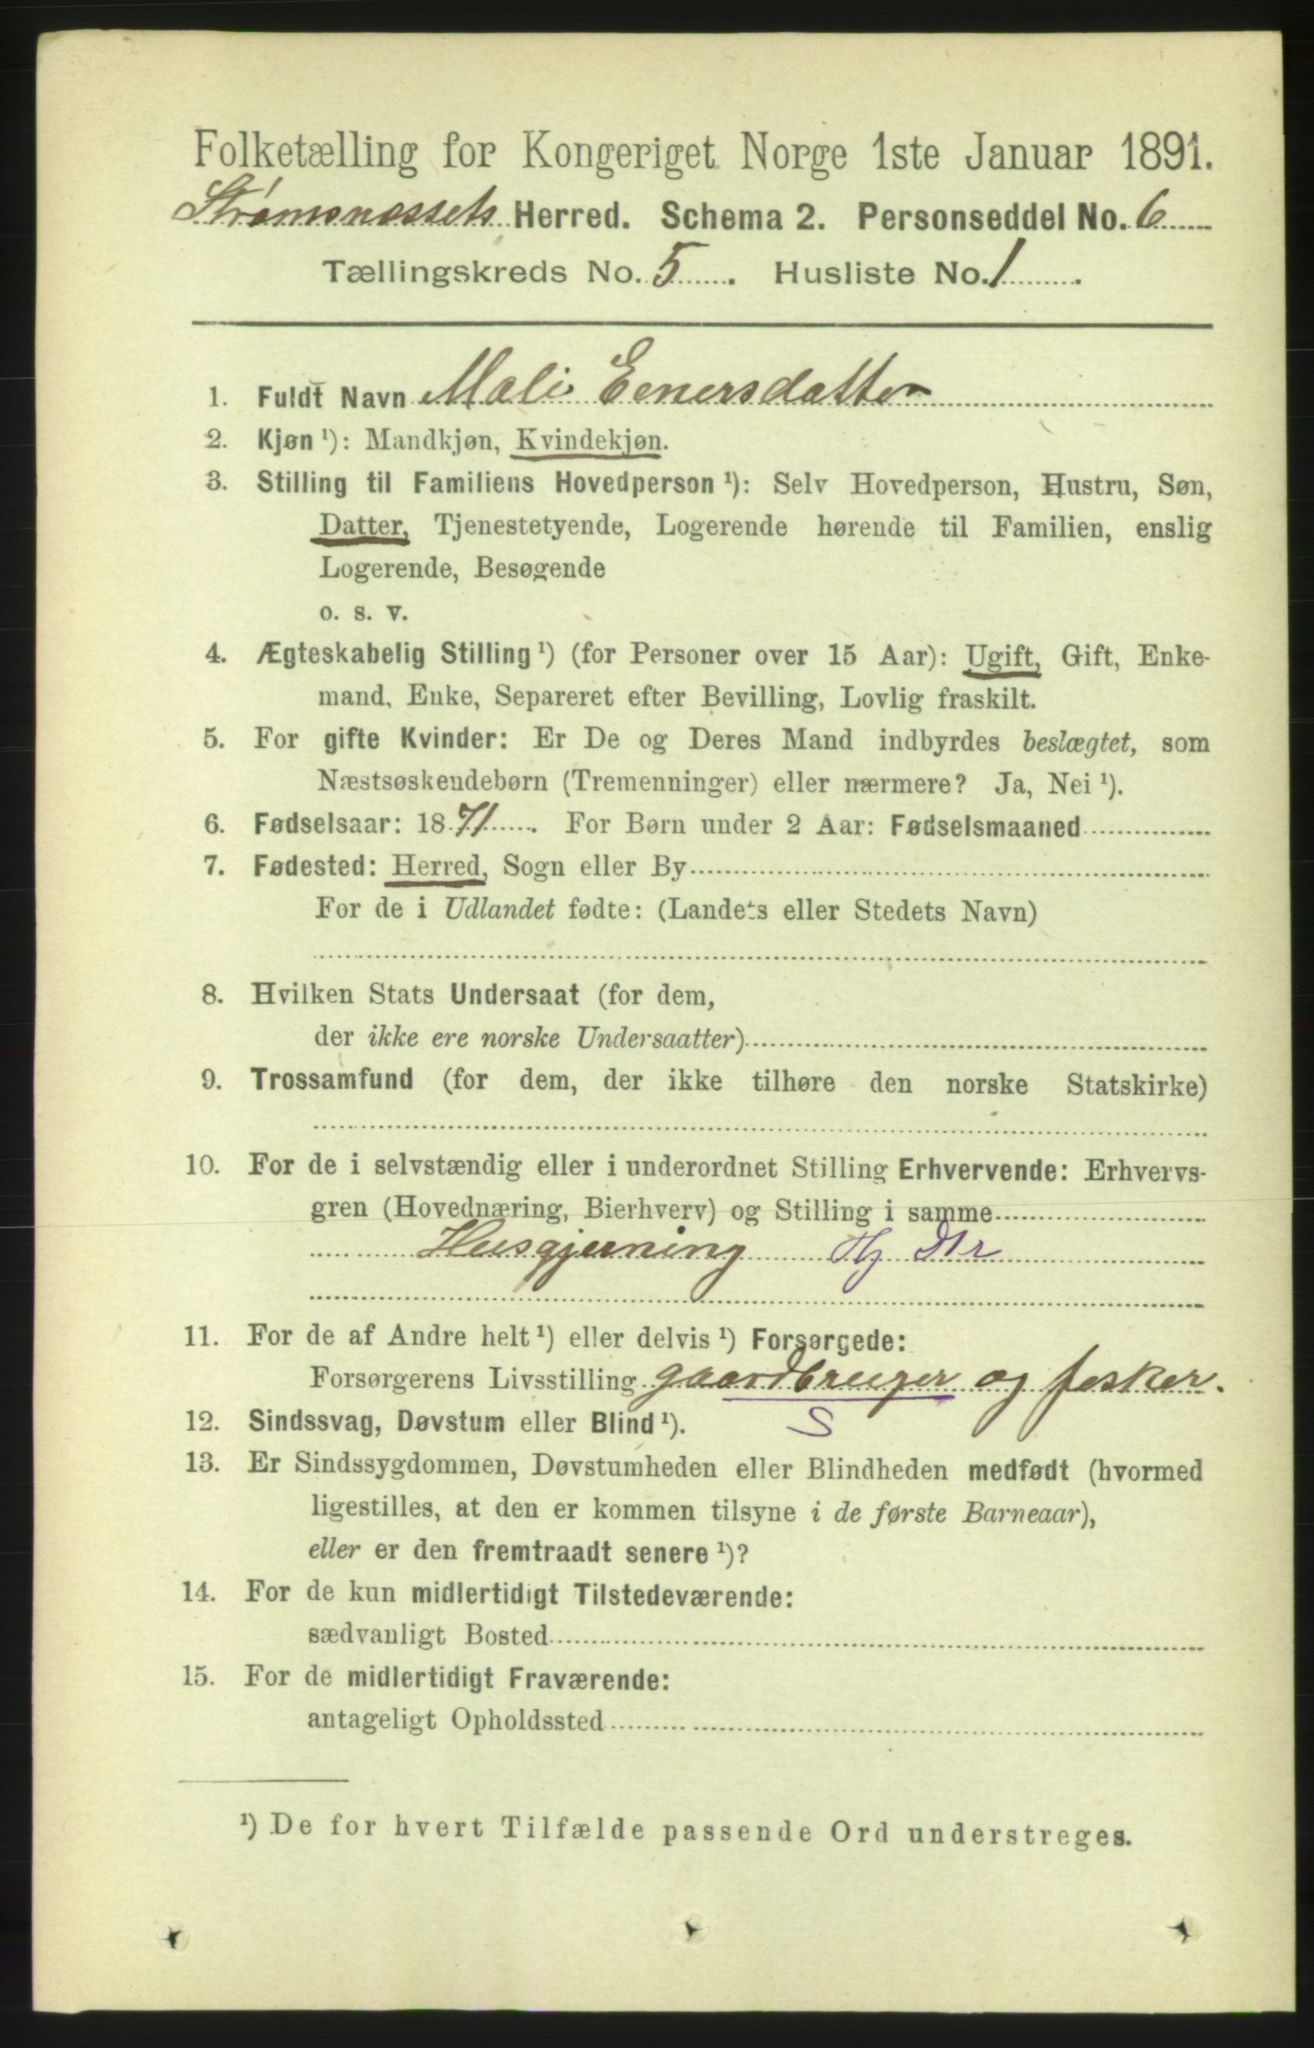 Folketælling for Kongeriget Norge 1ste Januar 1891.
Strømsnæssets Herred. Schema 2. Personseddel No. 6
Tællingskreds No. 5. Husliste No. 1.
1. Fuldt Navn Mali Einersdatter
2. Kjøn ¹): Mandkjøn, Kvindekjøn.
3. Stilling til Familiens Hovedperson ¹): Selv Hovedperson, Hustru, Søn,
Datter, Tjenestetyende, Logerende hørende til Familien, enslig
Logerende, Besøgende
o. s. v.
4. Ægteskabelig Stilling ¹) (for Personer over 15 Aar): Ugift, Gift, Enke-
mand, Enke, Separeret efter Bevilling, Lovlig fraskilt.
5. For gifte Kvinder: Er De og Deres Mand indbyrdes beslægtet, som
Næstsøskendebørn (Tremenninger) eller nærmere? Ja, Nei ¹).
6. Fødselsaar: 1871. For Børn under 2 Aar: Fødselsmaaned
7. Fødested: Herred, Sogn eller By
For de i Udlandet fødte: (Landets eller Stedets Navn)
8. Hvilken Stats Undersaat (for dem,
der ikke ere norske Undersaatter)
9. Trossamfund (for dem, der ikke tilhøre den norske Statskirke)
10. For de i selvstændig eller i underordnet Stilling Erhvervende: Erhvervs-
gren (Hovednæring, Bierhverv) og Stilling i samme
Husgjerning Hj Dtr
11. For de af Andre helt ¹) eller delvis ¹) Forsørgede:
Forsørgerens Livsstilling gaardbruger og fisker.
12. Sindssvag, Døvstum eller Blind ¹). S
13. Er Sindssygdommen, Døvstumheden eller Blindheden medfødt (hvormed
ligestilles, at den er kommen tilsyne i de første Barneaar),
eller er den fremtraadt senere ¹)?
14. For de kun midlertidigt Tilstedeværende:
sædvanligt Bosted
15. For de midlertidigt Fraværende:
antageligt Opholdssted
¹) De for hvert Tilfælde passende Ord understreges.